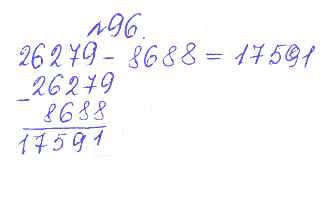 №96.
26279 - 8688 = 17591
- 26279
8688
17591